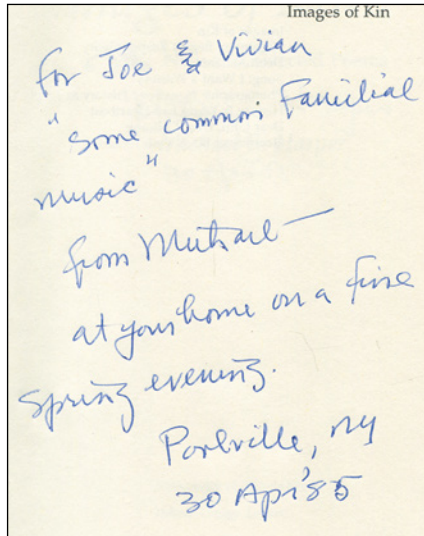 Images of Kin
For Joe & Vivian
"some common familial
music"
from Michael—
at your home on a fine
spring evening.
Portville, NY
30 Apr '85